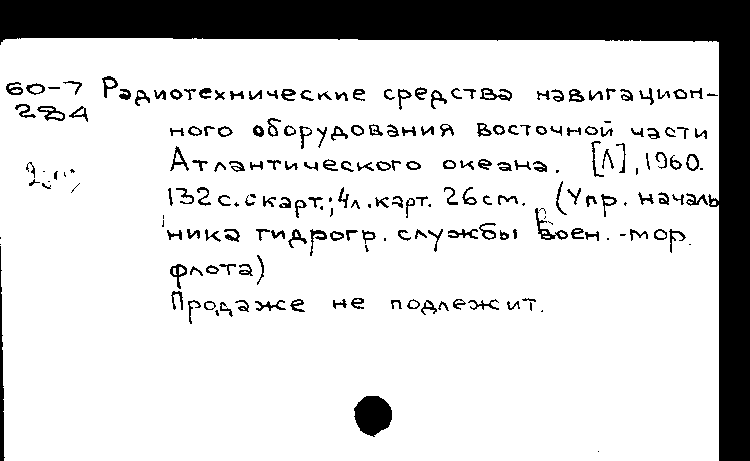 60-7 Радиотехнические средства навигацион-
284 ного оборудования восточной части
Атлантического океана. [Л], 1960.
132 с. с карт.; 4 л. карт. 26 см. (Упр. началь
ника гидрогр. службы Воен.-мор.
флота)
Продаже не подлежит.